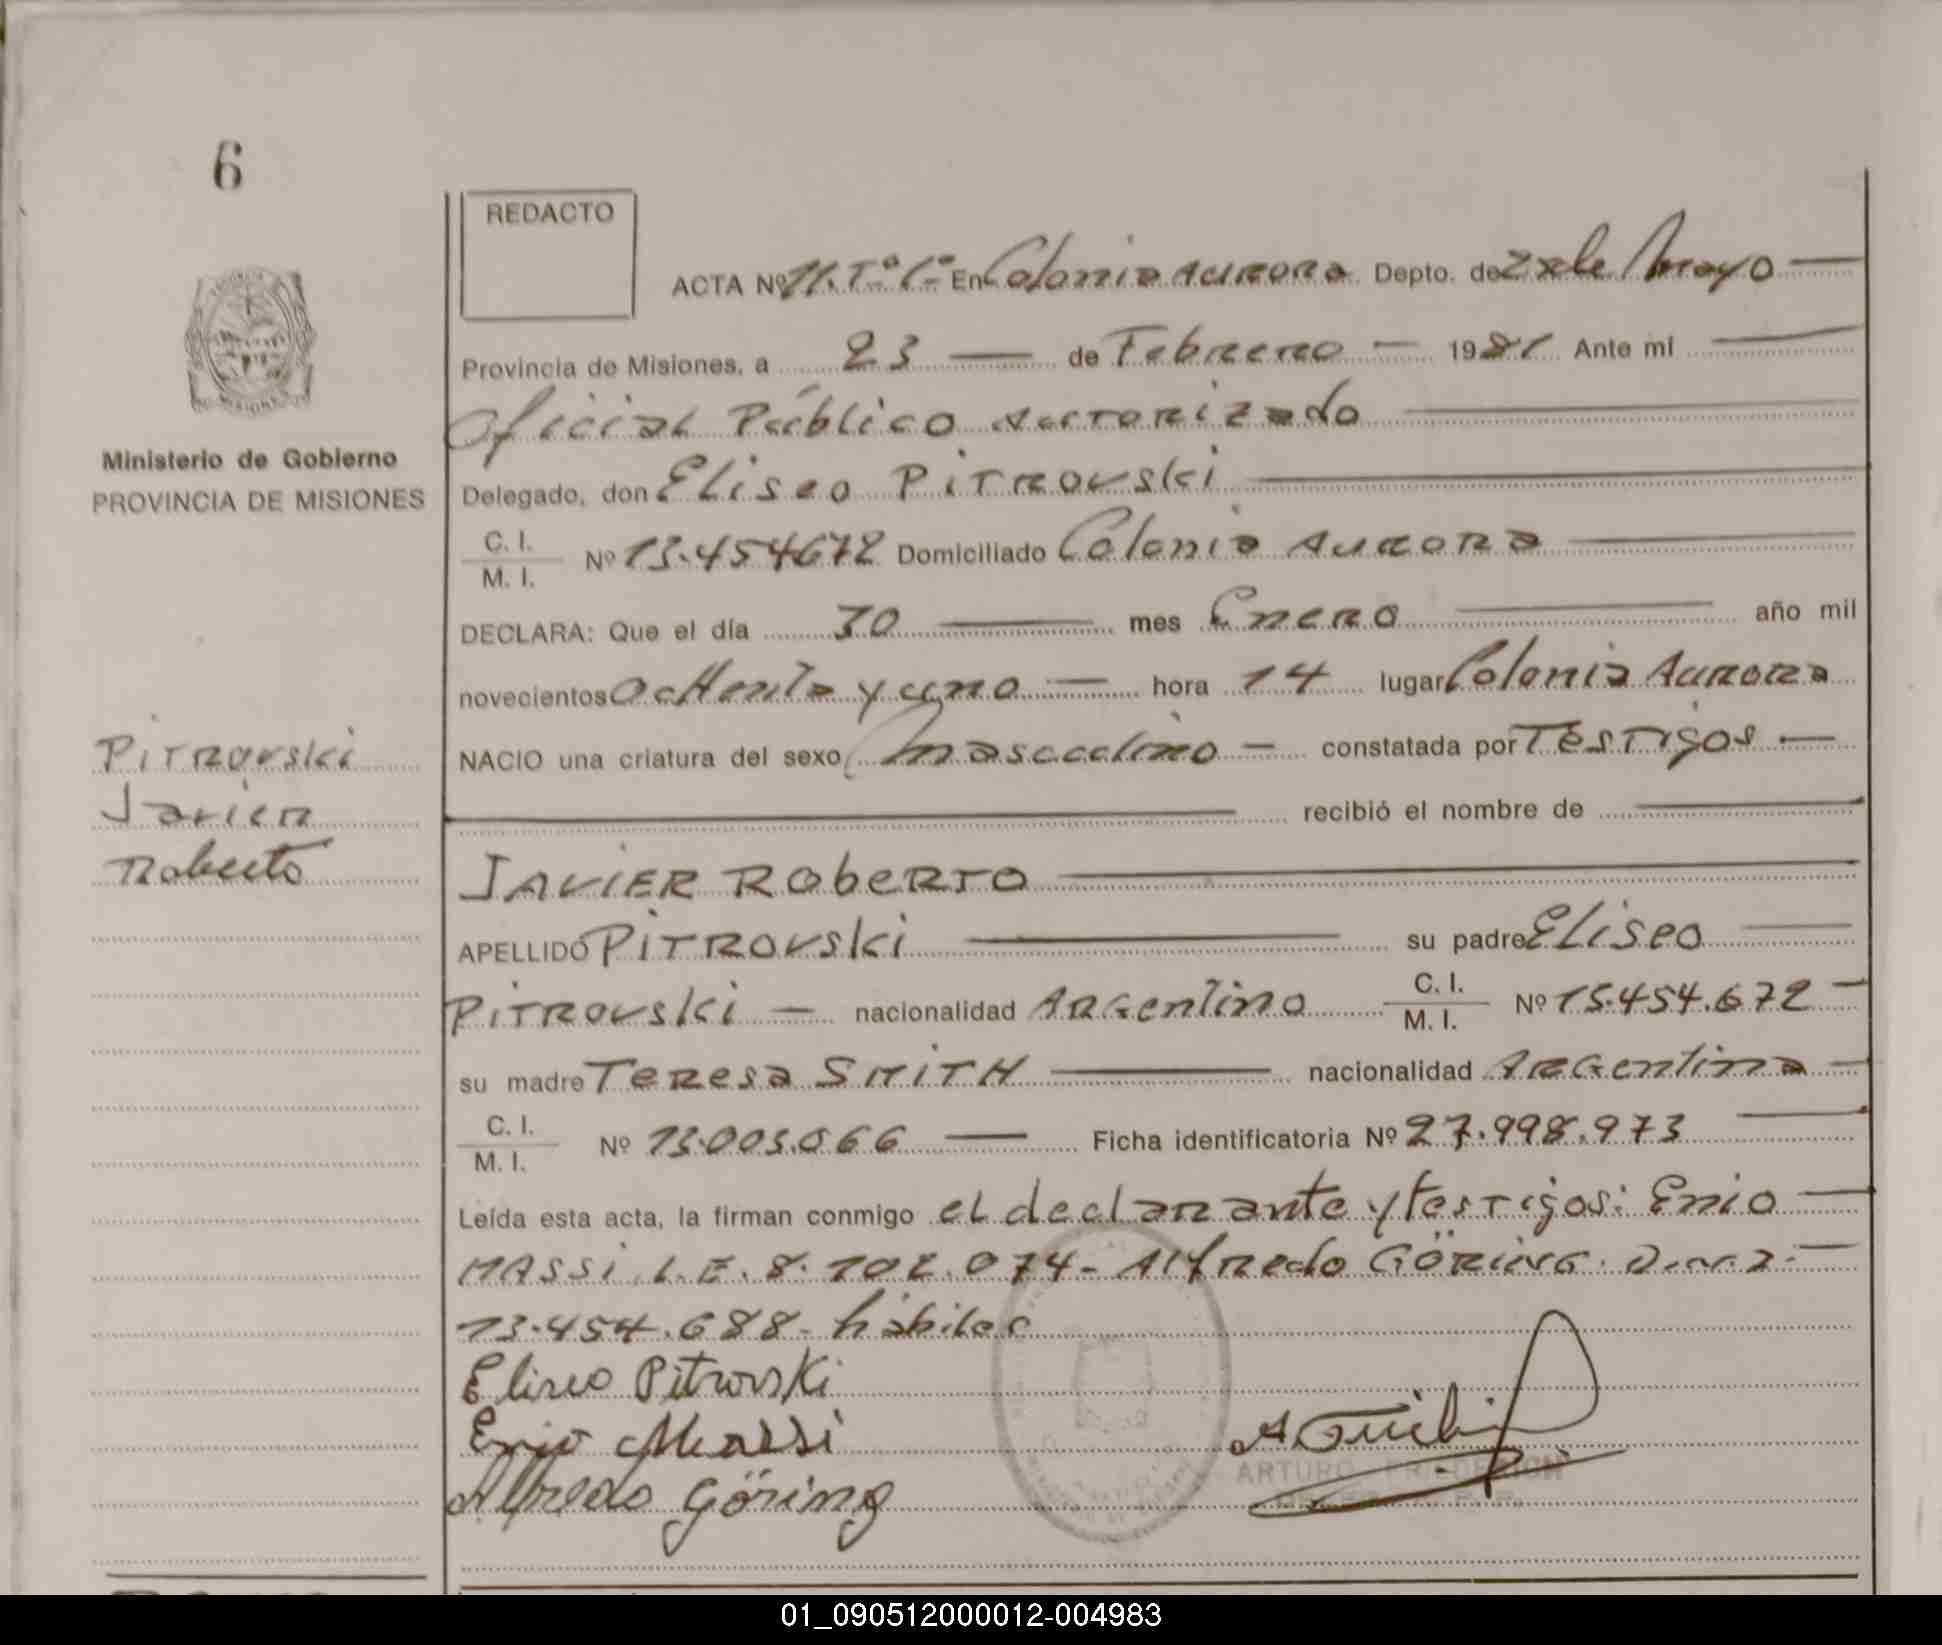 6
REDACTO
ACTA Nº 11. Tº 1º En Colonia Aurora Depto. de 25 de Mayo
Provincia de Misiones, a 23 de Febrero 1981 Ante mi
Oficial Público Autorizado
Ministerio de Gobierno
PROVINCIA DE MISIONES
Delegado, don Eliseo Pitrovski
C. I. / M. I. Nº 13.454672 Domiciliado Colonia Aurora
DECLARA: Que el día 30 mes Enero año mil
novecientos ochenta y uno hora 14 lugar Colonia Aurora
NACIO una criatura del sexo Masculino constatada por Testigos
recibió el nombre de
Pitrovski
Javier
Roberto
JAVIER ROBERTO
APELLIDO PITROVSKI su padre Eliseo
PITROVSKI nacionalidad Argentino C. I. / M. I. Nº 13.454.672
su madre Teresa SMITH nacionalidad Argentina
C. I. / M. I. Nº 13.005.066 Ficha identificatoria Nº 27.998.973
Leída esta acta, la firman conmigo el declarante y testigos: Enio
MASSI L.E. 8.702.074- Alfredo GÖRING. D.N.I.
13.454.688- hábiles
Eliseo Pitrovski
Enio Massi
Alfredo Göring
ARTURO FRIEDERICH
01_090512000012-004983